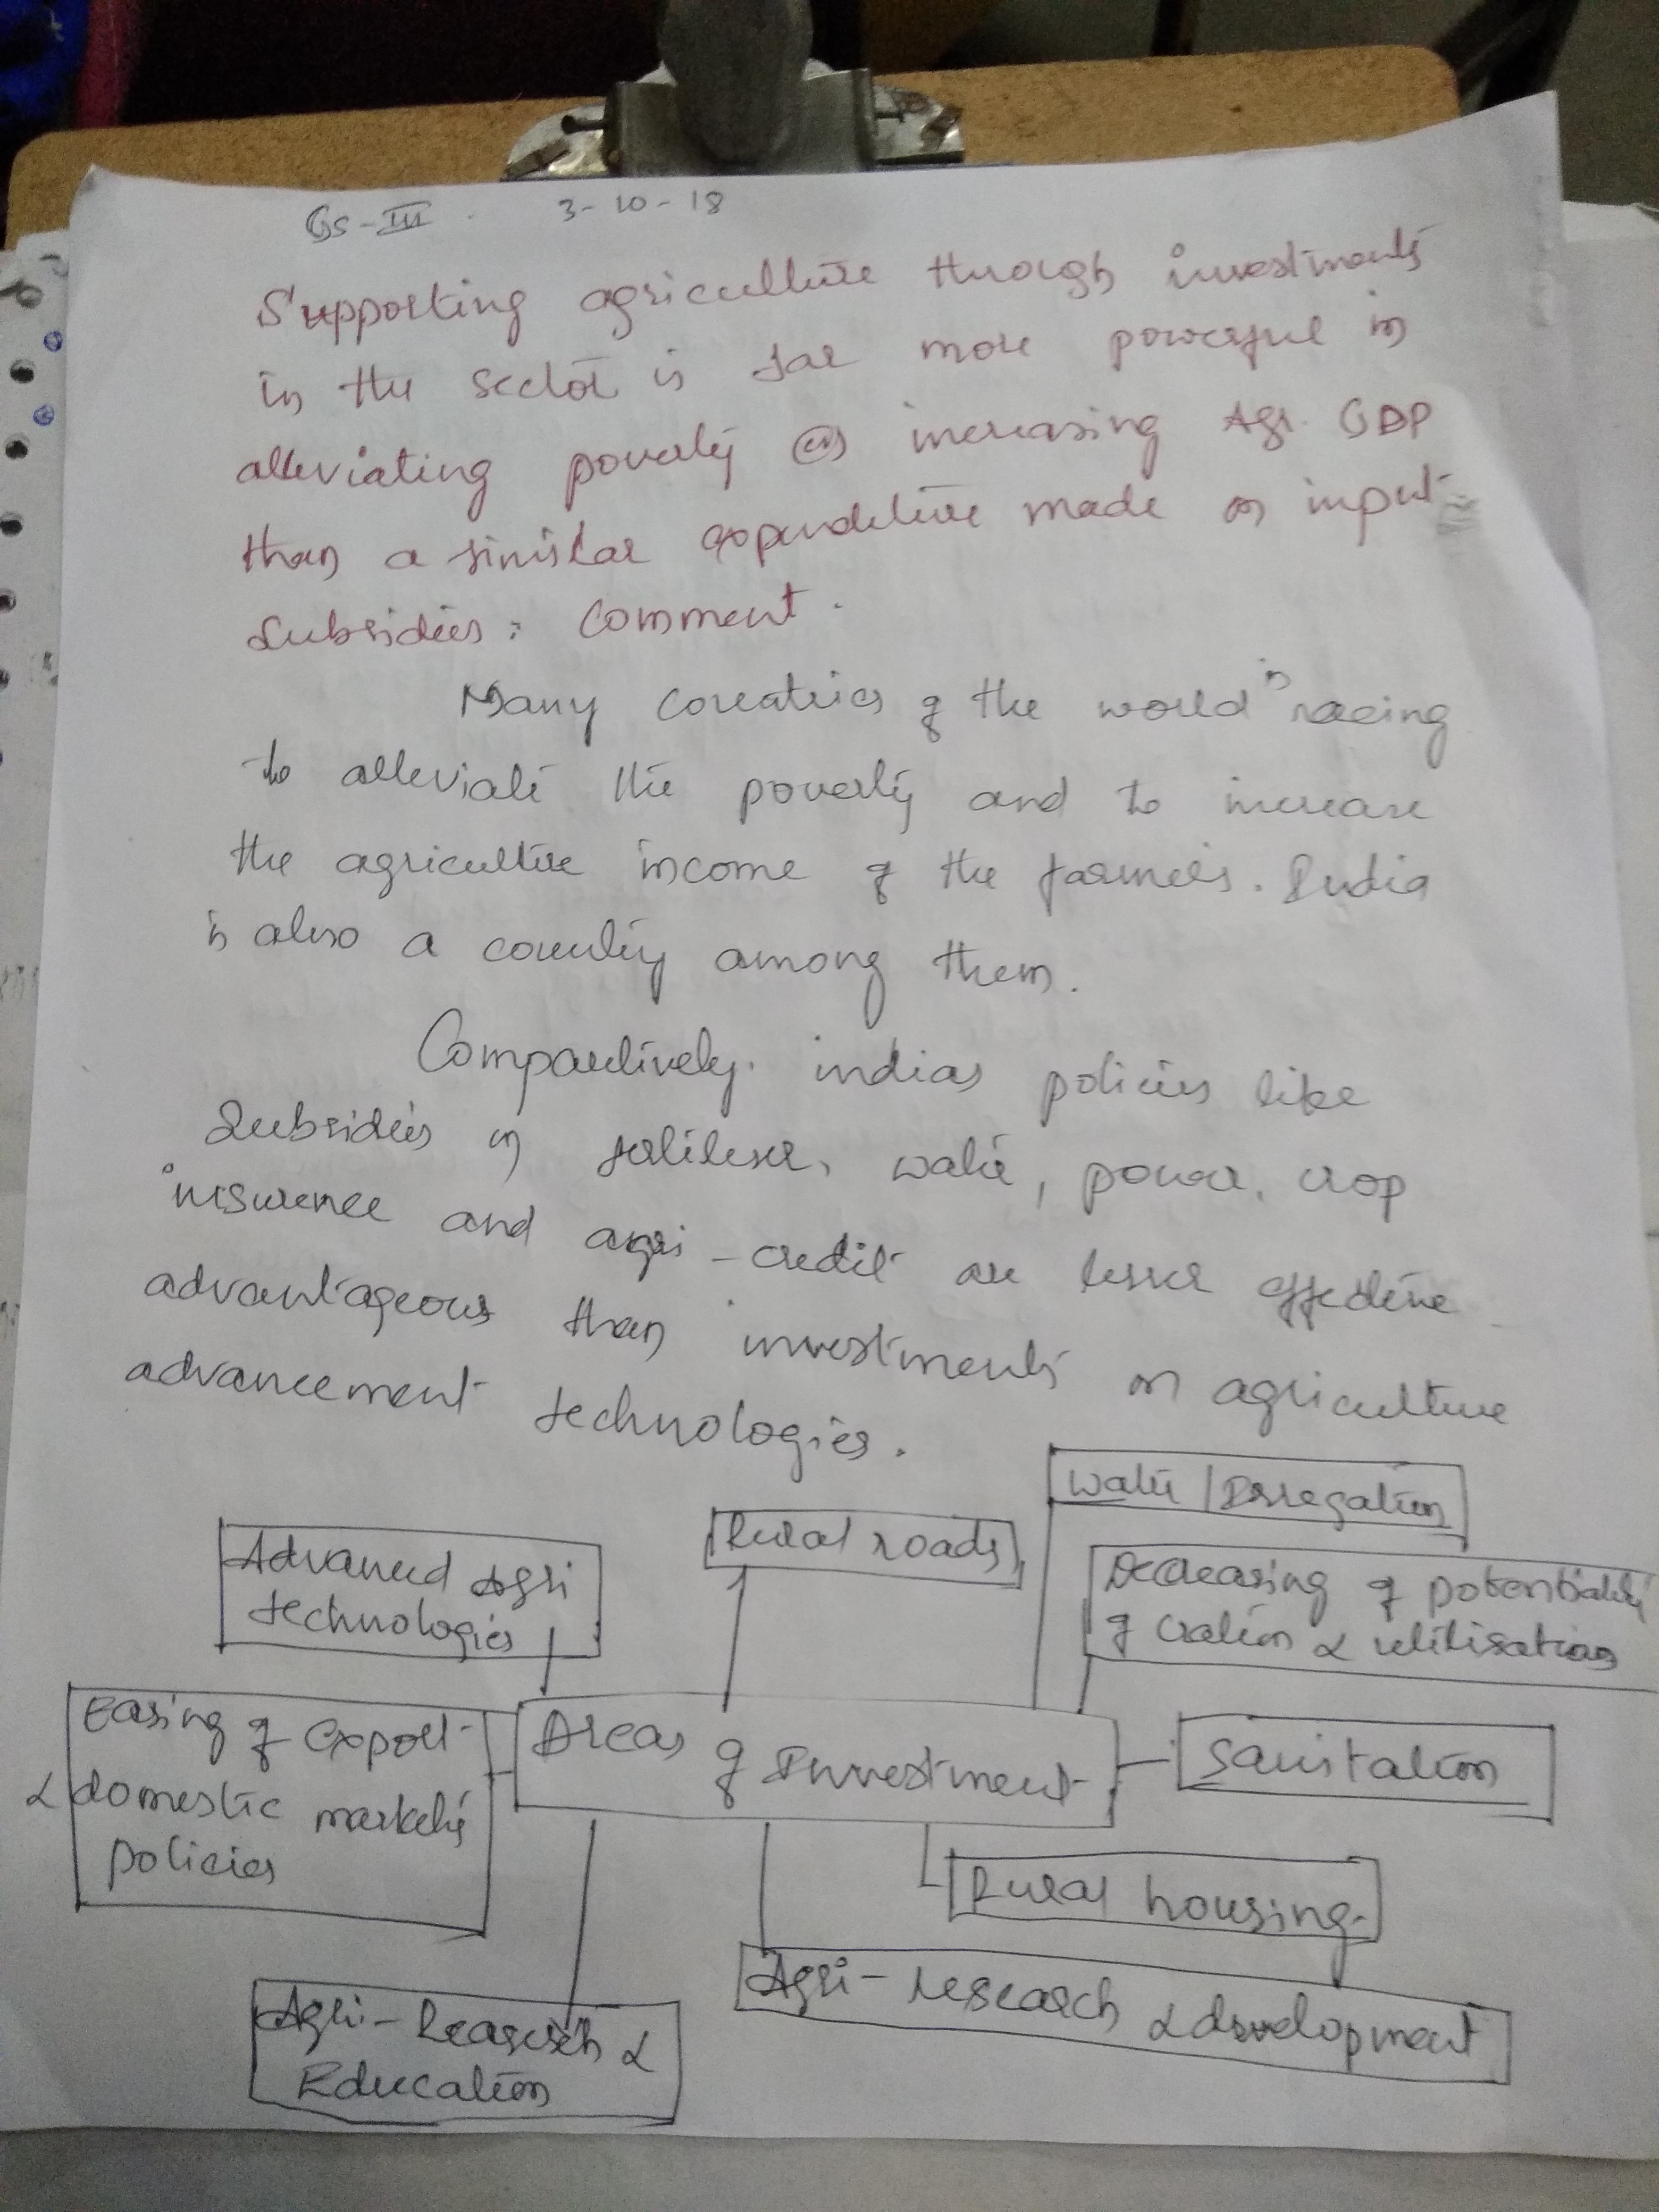 GS-III . 3-10-18
Supporting agriculture through investments
in the sector is far more powerful in
alleviating poverty (or) increasing Agr. GDP
than a similar expenditure made on input
subsidies: Comment.
Many countries of the world is racing
to alleviate the poverty and to increase
the agriculture income of the farmers. India
is also a country among them.
Comparitively. indias policies like
Subsidies in fertiliser, water, power, crop
insurence and agri-credit are lesser effective
advantageous than investments on agriculture
advancement technologies.
Water / Irregation
Rural roads
Advanced Agri
technologies
Decreasing of potentiality
of cration & utilisation
Easing of export
& domestic markets
policies
Areas of Investment
Sanitation
Rural housing.
Agri-research & development
Agri-Reaserch &
Education